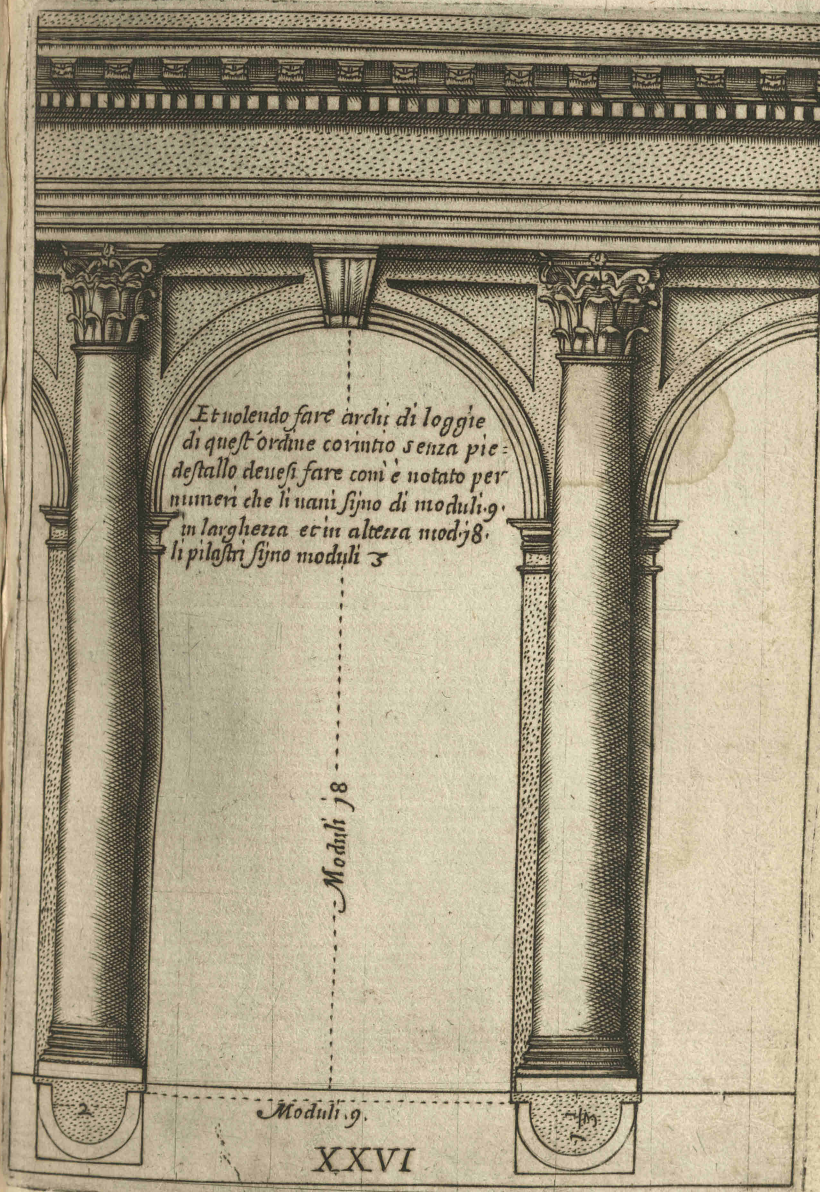 Et uolendo fare archi di loggie
di quest'ordine corintio senza pie=
destallo deuesi fare com'è notato per
numeri che li uani sijno di moduli.9.
in larghezza et in altezza mod.18.
li pilastri sijno moduli 3
Moduli 18
Moduli.9.
2
XXVI